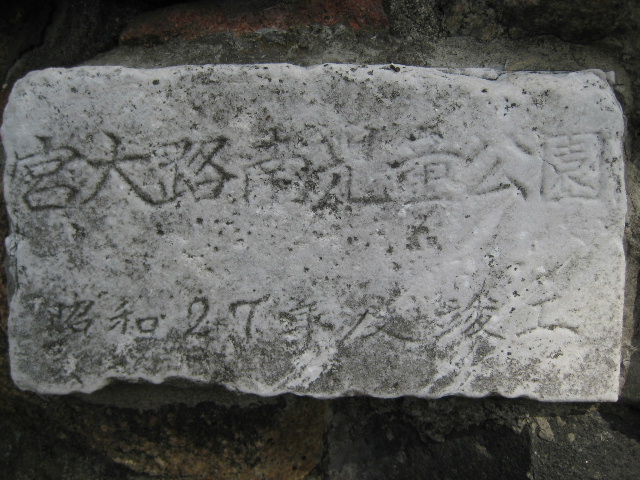 宮大路南児童公園
昭和27年度竣工